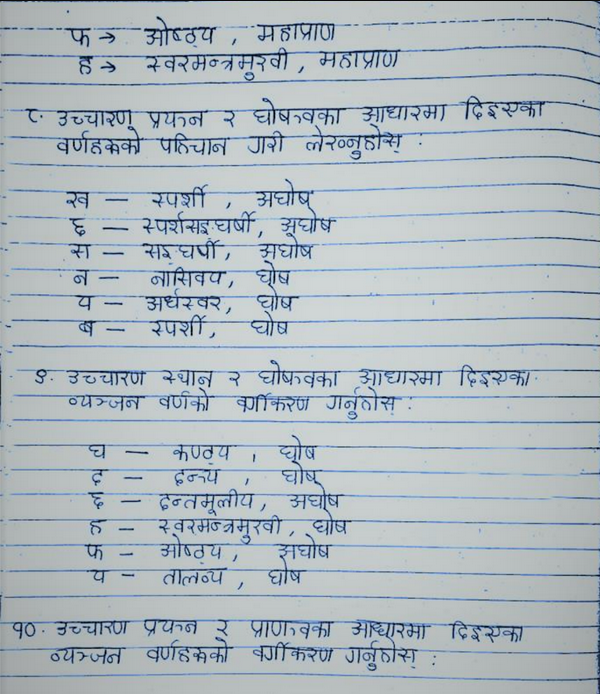 फ → ओष्ठ्य , महाप्राण
ह → स्वरयन्त्रमुखी , महाप्राण
८. उच्चारण प्रयत्न र घोषत्वका आधारमा दिइएका
वर्णहरूको पहिचान गरी लेख्नुहोस् :
ख — स्पर्शी , अघोष
छ — स्पर्शसङ्घर्षी, अघोष
स — सङ्घर्षी, अघोष
न — नासिक्य, घोष
य — अर्धस्वर, घोष
ब — स्पर्शी, घोष
९. उच्चारण स्थान र घोषत्वका आधारमा दिइएका
व्यञ्जन वर्णको वर्गीकरण गर्नुहोस् :
घ — कण्ठ्य , घोष
द — दन्त्य , घोष
छ — दन्तमूलीय, अघोष
ह — स्वरयन्त्रमुखी, घोष
फ — ओष्ठ्य, अघोष
य — तालव्य, घोष
१०. उच्चारण प्रयत्न र प्राणत्वका आधारमा दिइएका
व्यञ्जन वर्णहरूको वर्गीकरण गर्नुहोस् :